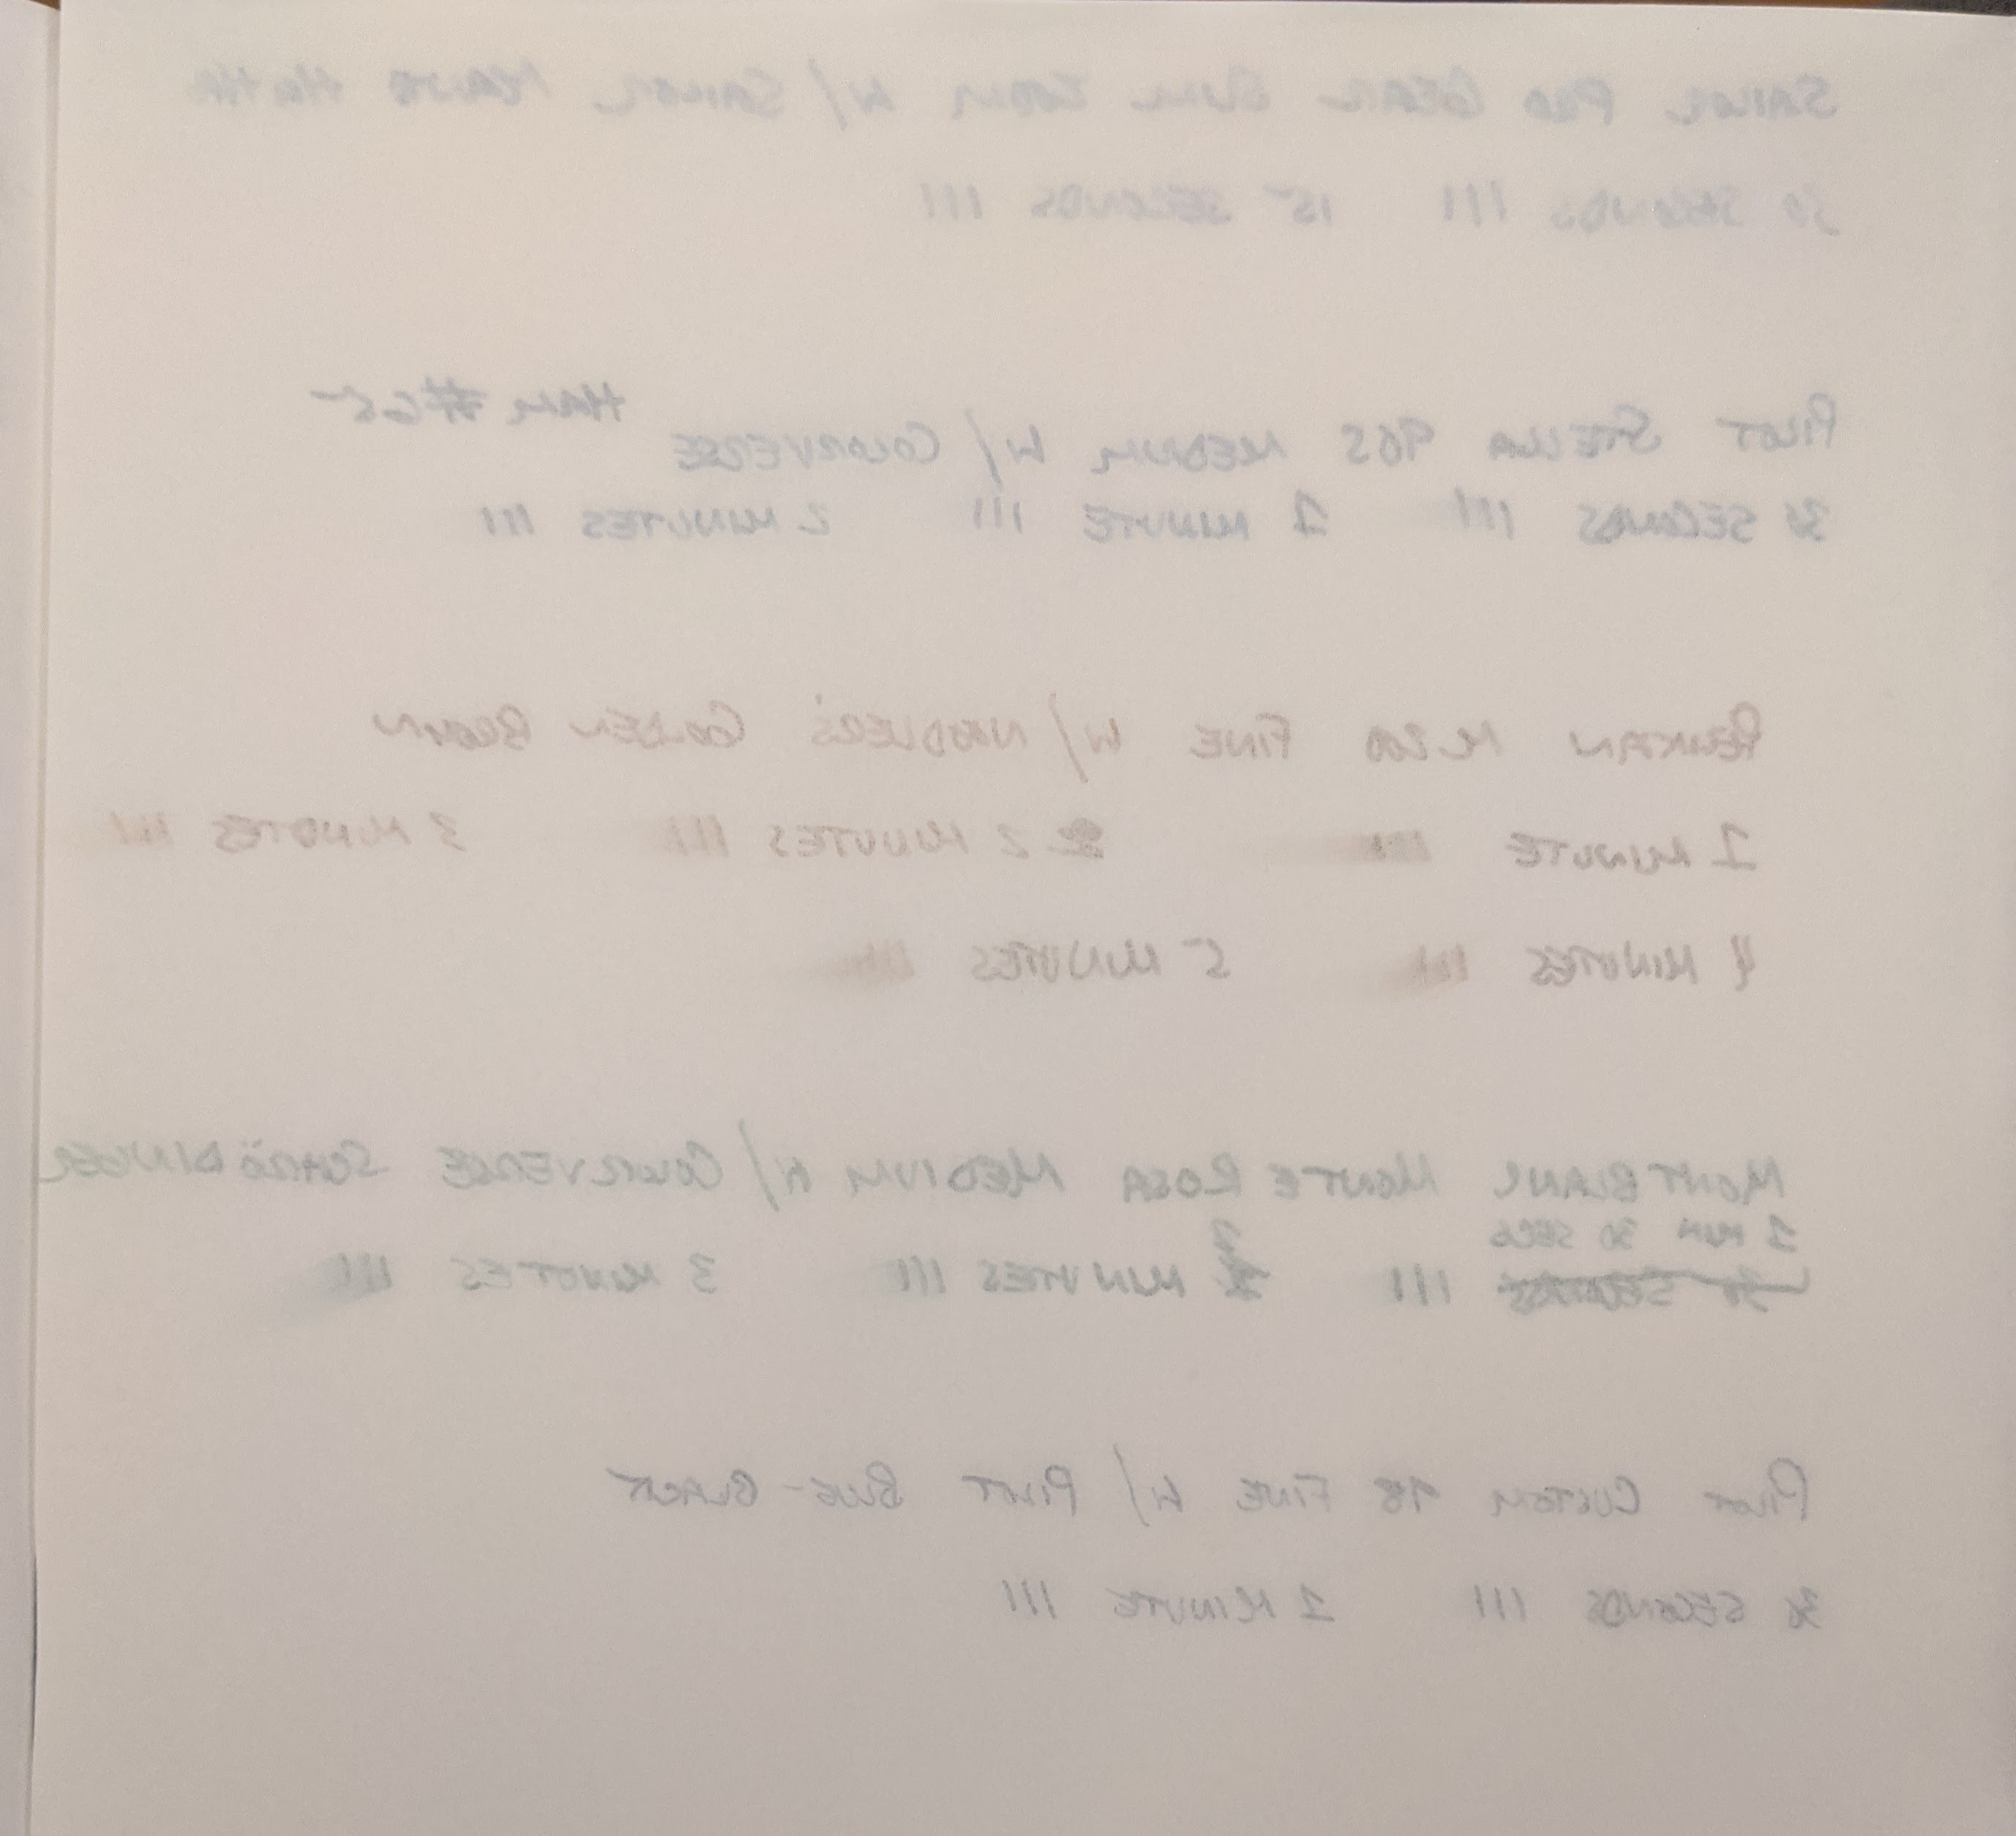 SAILOR PRO GEAR SLIM ZOOM W/ SAILOR MANYO HAHA
30 SECONDS III 15 SECONDS III
HAM #65
PILOT STELLA 90S MEDIUM W/ COLORVERSE
30 SECONDS III 1 MINUTE III 2 MINUTES III
PELIKAN M200 FINE W/ NOODLER'S GOLDEN BROWN
1 MINUTE III 2 MINUTES III 3 MINUTES III
4 MINUTES III 5 MINUTES III
MONTBLANC MONTE ROSA MEDIUM W/ COLORVERSE SCHRÖDINGER
1 MIN 30 SECS
30 SECONDS III 2 MINUTES III 3 MINUTES III
PILOT CUSTOM 98 FINE W/ PILOT BLUE-BLACK
30 SECONDS III 1 MINUTE III